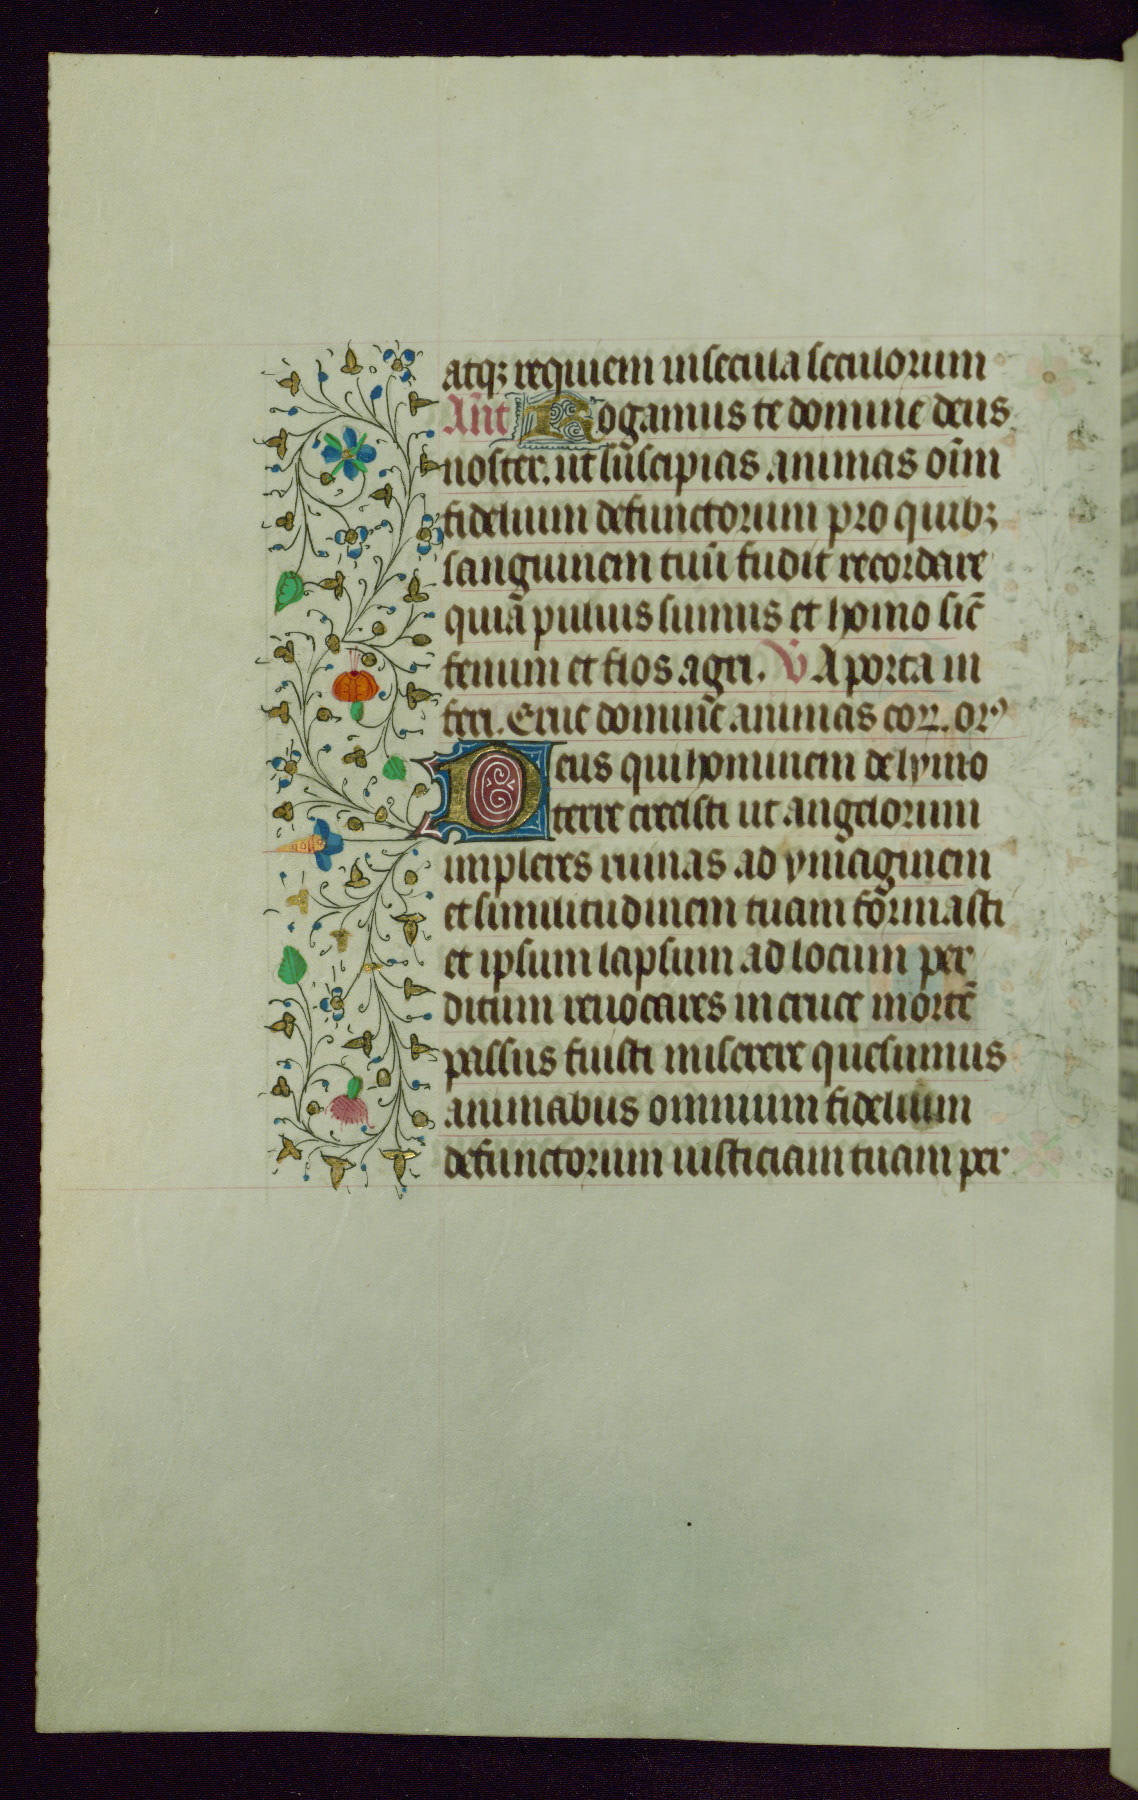 atq₃ requiem in secula seculorum
Ant Rogamus te domine deus
noster. ut suscipias animas oīm
fidelium defunctorum pro quib₃
sanguinem tuū fudit recordare
quia puluis sumus et homo sic̄
fenum et flos agri. V A porta in
feri. Erue dominē animas eoꝝ. or
Deus qui hominem de lymo
terre creasti ut angelorum
impleres ruinas ad ymaginem
et similitudinem tuam formasti
et ipsum lapsum ad locum per
ditum reuocares in cruce mortē
passus fuisti miserere quesumus
animabus omnium fidelium
defunctorum iusticiam tuam per